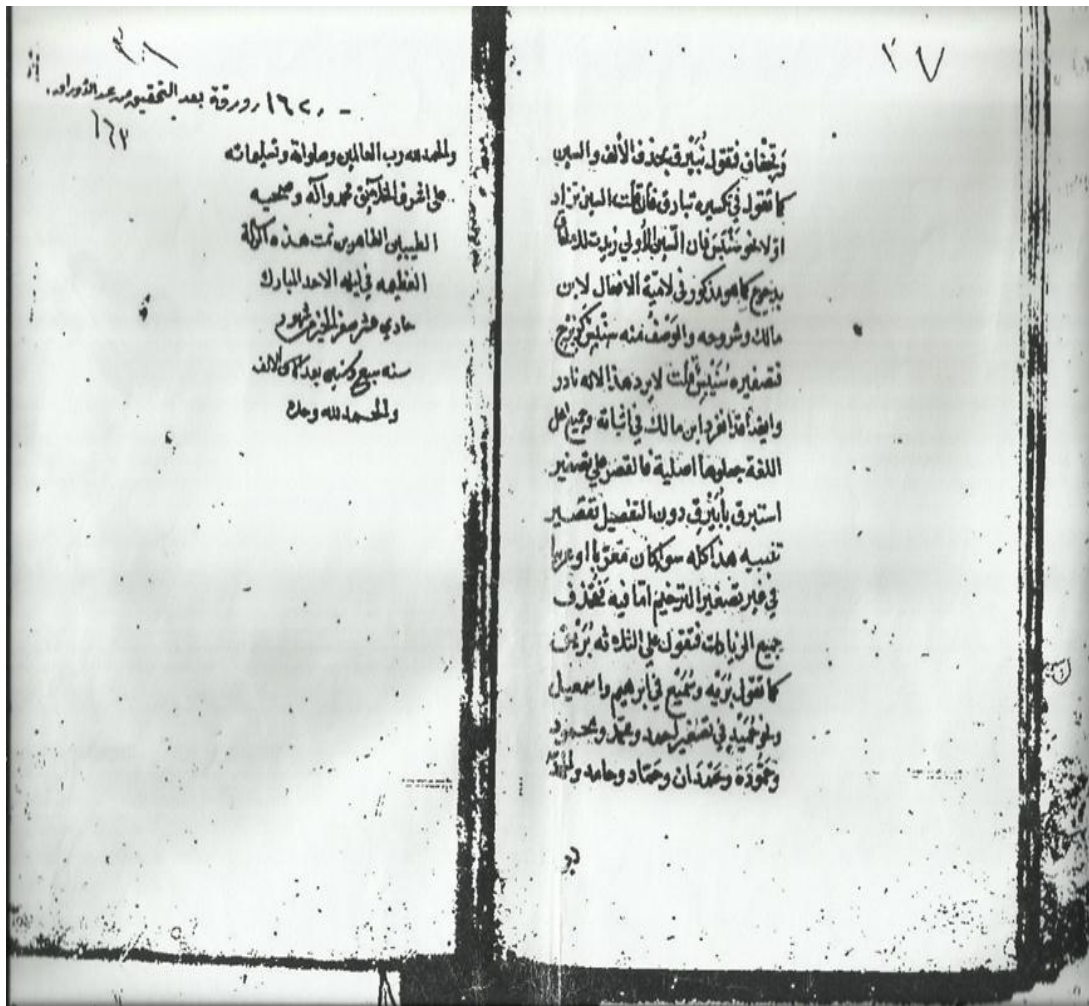 ٢٧
وتخفاف فتقول تُبَيْرِق بحذف الألف والسين
كما تقول في تكسيره تبارق فان قلت السين تزاد
اولا نحو سَنْبَسَ فان السين الاولى زيدت
كما هو مذكور في لامية الافعال لابن
مالك وشروحه والوصف منه سنبس
فتصغيره سُنَيْبس قلت لا يرد هذا لانه نادر
وايضا فقد انفرد ابن مالك في اثباته وجميع اهل
اللغة جعلوها اصلية فالقصر على تصغير
استبرق بأُبَيْرِق دون التفصيل تقصير
تنبيه هذا كله سوا كان معربا او عربيا
في غير تصغير الترخيم امّا فيه فتحذف
جميع الزيادات فتقول على الثلاثه بُرَيْق
كما تقول بُرَيْه وسُمَيْع في ابرهيم واسمعيل
ونحو حُمَيْد في تصغير احمد ومحمّد ومحمود
وحمّودَة وحَمْدَان وحمّاد وحامد
١٦٢ ورقة بعد التحقيق من عدد الأوراق.
١٦٣
والحمد لله رب العالمين وصلواته وتسليماته
على اشرف الخلق محمد وآله وصحبه
الطيبين الطاهرين تمت هذه الرسالة
العظيمه في ليلة الاحد المبارك
حادي عشر صفر الخير
سنه سبع بعد الالف
والحمد لله وحده